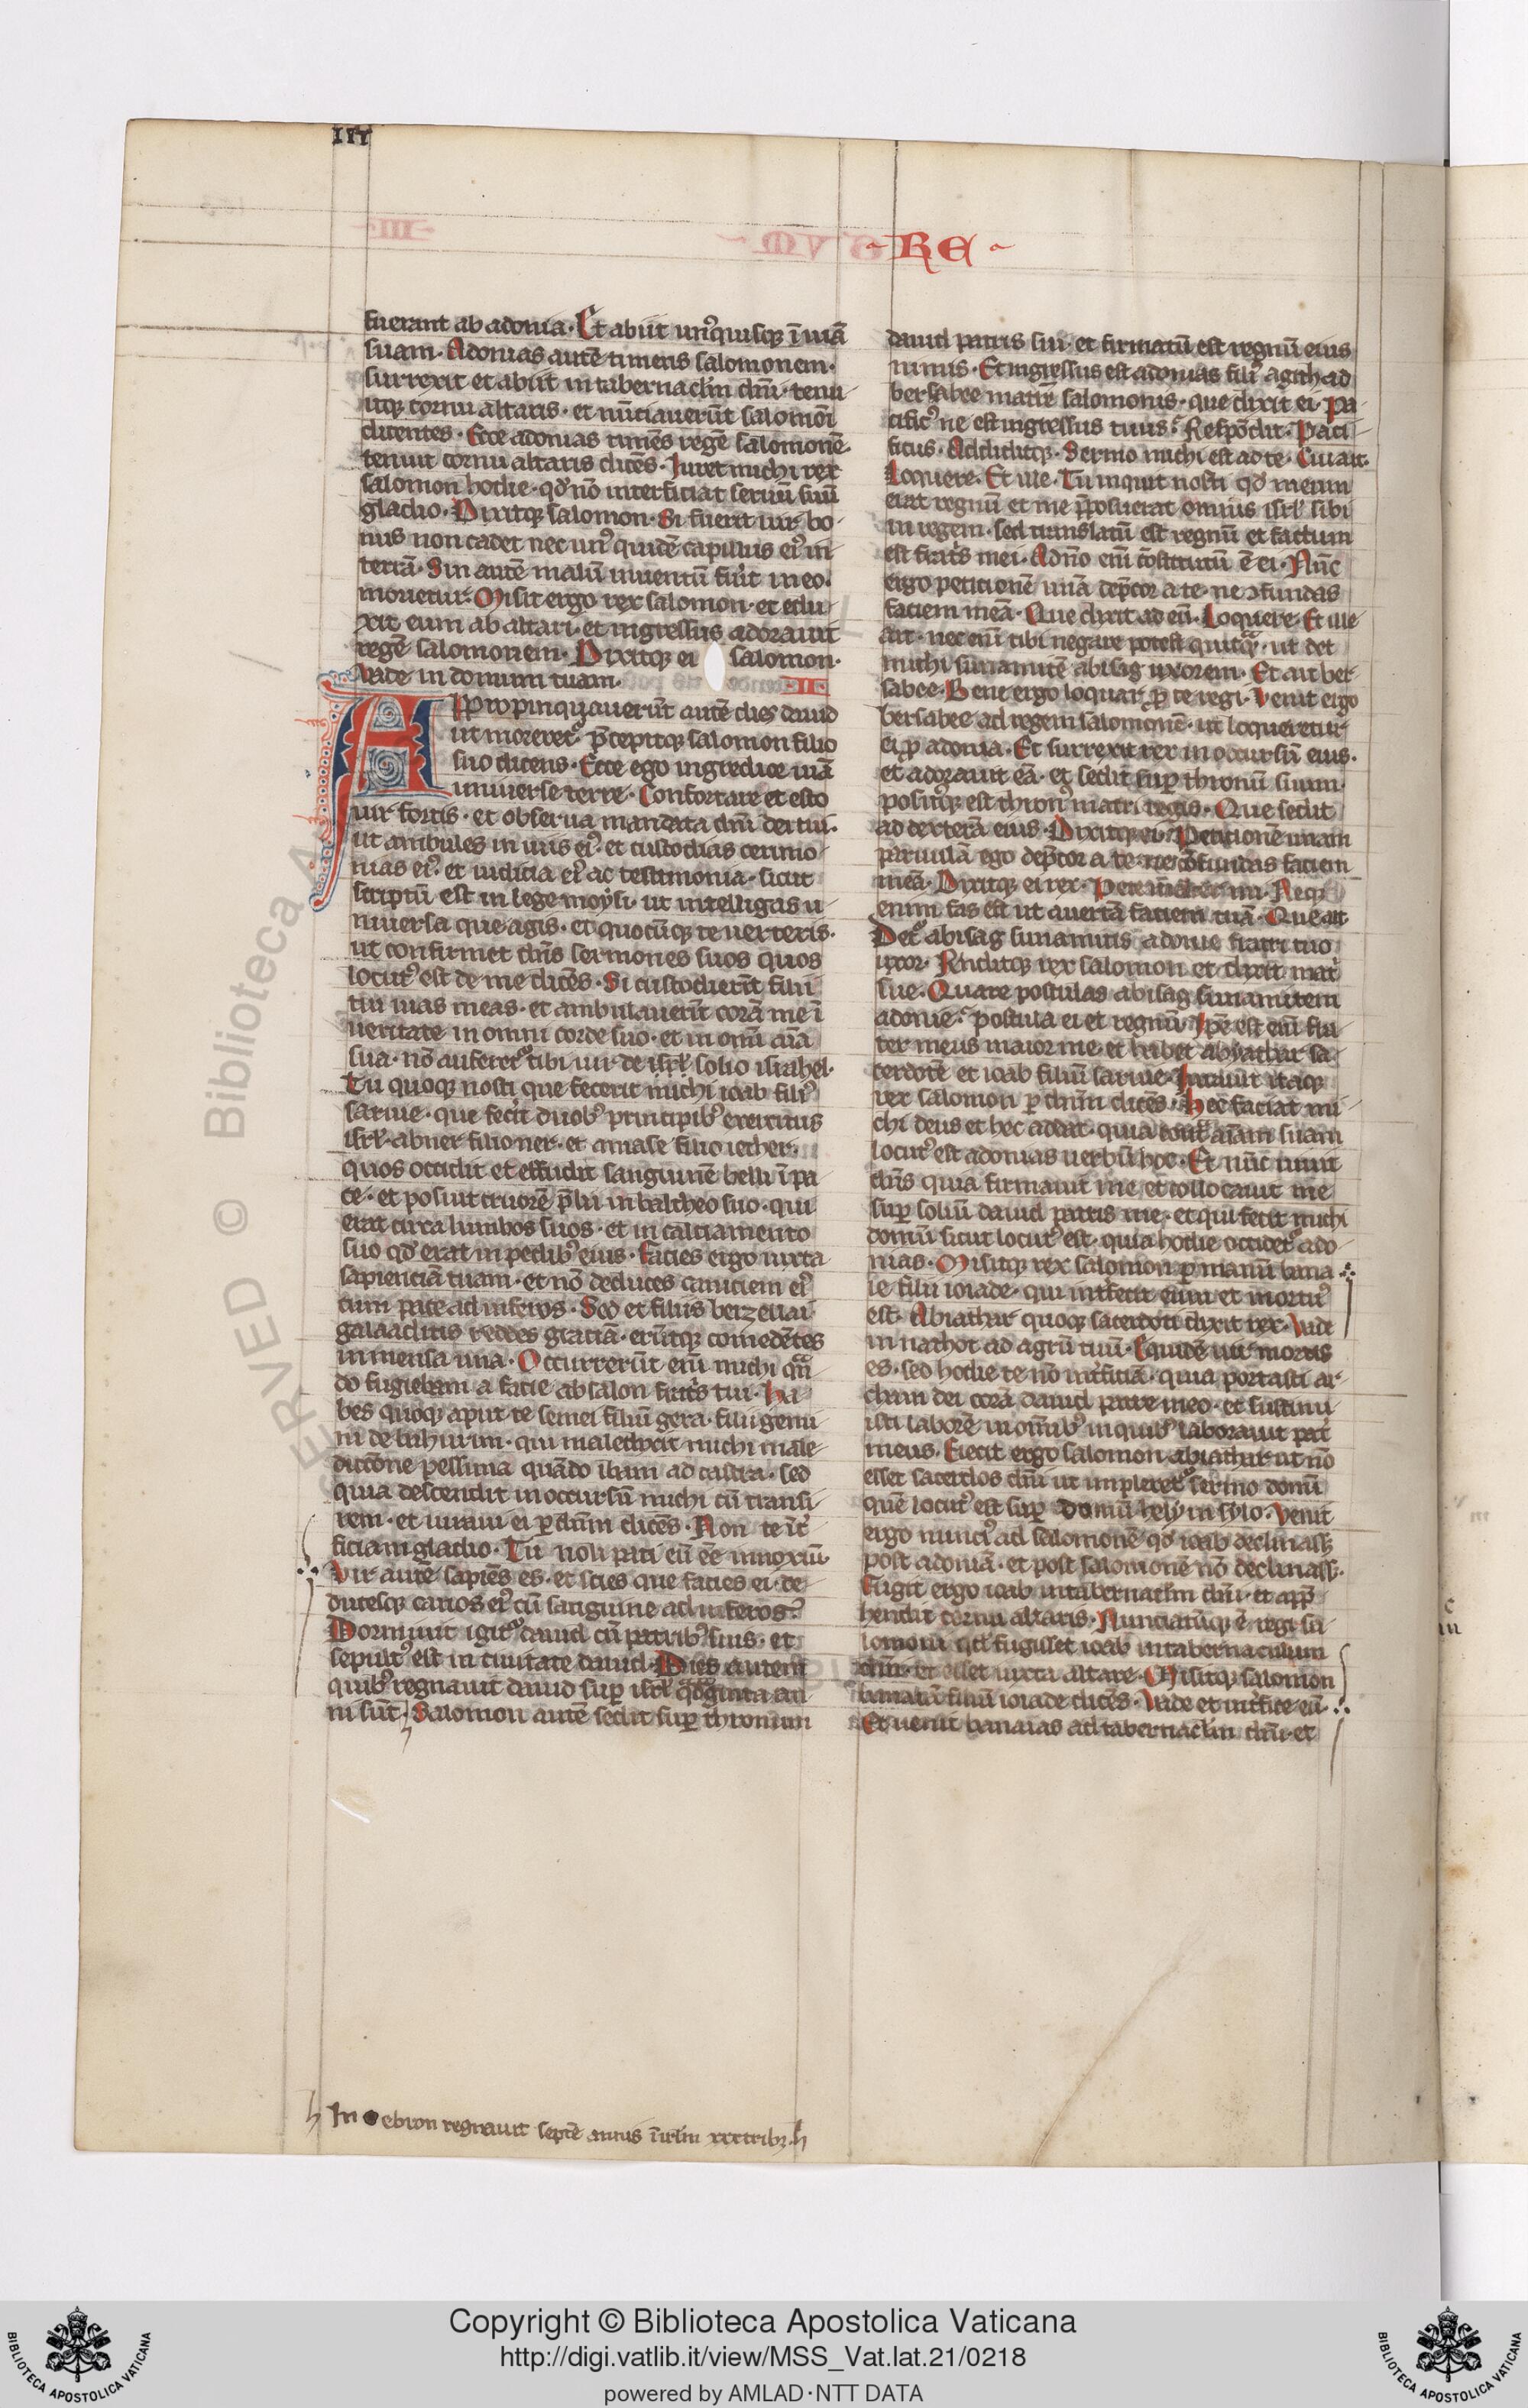 III
RE
fuerant ab adonia. Et abiit un9quisq; ī uiā
suam. Adonias autē timens salomonem.
surrexit et abiit in tabernaclm dnī. tenu
itq; cornu altaris. et nūtiauerūt salomoī
dicentes. Ecce adonias timēs regē salomonē.
tenuit cornu altaris dicēs. Iuret michi rex
salomon hodie. qd nō interficiat seruū suū
gladio. Dixitq; salomon. Si fuerit uir bo
nus non cadet nec un9 quidē capillus ei9 in
terrā. Sin autē malū inuentū fuit in eo.
morietur. Misit ergo rex salomon. et edu
xit eum ab altari. et ingressus adorauit
regē salomonem. Dixitq; ei salomon.
Vade in domum tuam. II
APpropinquauerūt autē dies dauid
ut moreret. p̄cepitq; salomon filio
suo dicens. Ecce ego ingredior uiā
uniuerse terre. Confortare et esto
uir fortis. et obserua mandata dnī dei tui.
ut ambules in uiis ei9. et custodias cerimo
nias ei9. et iudicia ei9 ac testimonia. sicut
scriptū est in lege moysi. ut intelligas u
niuersa que agis. et quocūq; te uerteris.
ut confirmet dns̄ sermones suos quos
locut9 est de me dicēs. Si custodierīt filii
tui uias meas. et ambulauerīt corā me ī
ueritate in omni corde suo. et in omī aīa
sua. nō auferet tibi uir de isrl solio israhel.
Tu quoq; nosti que fecerit michi ioab fili9
saruie. que fecit duob9 principib9 exercitus
isrl. abner filio ner. et amase filio iether.
quos occidit et effudit sanguinē belli ī pa
ce. et posuit cruorē p̄lii in baltheo suo. qui
erat circa lumbos suos. et in calciamento
suo qd erat in pedib9 eius. Facies ergo iuxta
sapienciā tuam. et nō deduces caniciem ei9
cum pace ad inferos. Sed et filiis berzellai
galaaditis reddes gratiā. erūtq; comedētes
in mensa tua. Occurrerūt enī michi qñ
do fugiebam a facie absalon fratris tui. Ha
bes quoq; aput te semei filiū gera. filii gemi
ni de bahurim. qui maledixit michi male
dictōne pessima quādo ibam ad castra. sed
quia descendit in occursū michi cū transi
rem. et iuraui ei p dnm̄ dicēs. Non te īt
ficiam gladio. Tu noli pati eū ēē innoxiū.
Vir autē sapiēs es. et scies que facies ei. de
ducesq; canos ei9 cū sanguine ad inferos.
Dormiuit igit dauid cū patrib9 suis. et
sepult9 est in ciuitate dauid. Dies autem
quib9 regnauit dauid sup isrl qdginta an
ni sūt. Salomon autē sedit sup thronum
dauid patris sui. et firmatū est regnū eius
nimis. Et ingressus est adonias fili9 agith ad
bersabee matrē salomonis. que dixit ei. Pa
cific9 ne est ingressus tuus. Respōdit. Paci
ficus. Addiditq;. Sermo michi est ad te. Cui ait.
Loquere. Et ille. Tu inquit nosti qd meum
erat regnū et me p̄posuerat omnis isrl sibi
in regem. sed translatū est regnū et factum
est fratris mei. A dn̄o enī cōstitutū ē ei. Nūc
ergo peticionē unā dep̄cor a te. ne ɔfundas
faciem meā. Que dixit ad eū. Loquere. Et ille
ait. nec enī tibi negare potest quicq. ut det
michi sunamitē abisag uxorem. Et ait ber
sabee. Bene ergo loquar p te regi. Venit ergo
bersabee ad regem salomonē. ut loqueretur
ei p adonia. Et surrexit rex in occursū eius.
et adorauit eā. et sedit sup thronū suum.
posit9q; est thron9 matri regis. Que sedit
ad dexterā eius. Dixitq; ei. Peticionē unam
paruulā ego dep̄cor a te. ne cōfundas faciem
meā. Dixitq; ei rex. Pete mater mi. Neq;
enim fas est ut auertā faciem tuā. Que ait.
Det abisag sunamitis adonie fratri tuo
uxor. Rn̄ditq; rex salomon et dixit mat
sue. Quare postulas abisag sunamitem
adonie. postula ei et regnū. Ipe est enī fra
ter meus maior me. et habet abyathar sa
cerdotē et ioab filiū saruie. Iurauit itaq;
rex salomon p dnm̄ dicēs. Hec faciat mi
chi deus et hec addat. quia cont aīam suam
locut9 est adonias uerbū hoc. Et nūc uiuit
dns̄ quia firmauit me et collocauit me
sup soliū dauid patris mei. et qui fecit michi
domū sicut locut9 est. quia hodie occidet ado
nias. Misitq; rex salomon p manū bana
ie filii ioiade. qui intfecit eum et mortu9
est. Abiathar quoq; sacerdoti dixit rex. Vade
in nathot ad agrū tuū. Equidē uir mortis
es. sed hodie te nō intficiā. quia portasti ar
cham dei corā dauid patre meo. et sustinu
isti laborē in omīb9 in quib9 laborauit pat
meus. Eiecit ergo salomon abiathar ut nō
esset sacerdos dnī ut impleret sermo domī
quē locut9 est sup domū hely in sylo. Venit
ergo nunci9 ad salomonē qd ioab declinass;
post adoniā. et post salomonē nō declinass;.
Fugit ergo ioab in tabernaclm dnī. et app̄
hendit cornu altaris. Nunciatūq; ē regi sa
lomoni qd fugisset ioab in tabernaculum
dnī. et esset iuxta altare. Misitq; salomon
banaiā filiū ioiade dicēs. Vade et intfice eū.
Et uenit banaias ad tabernaclm dnī. et
In ebron regnauit septē annis ī irlm xxxtrib;
Copyright © Biblioteca Apostolica Vaticana
http://digi.vatlib.it/view/MSS_Vat.lat.21/0218
powered by AMLAD·NTT DATA
BIBLIOTECA APOSTOLICA VATICANA
BIBLIOTECA APOSTOLICA VATICANA
ERVED © Biblioteca A